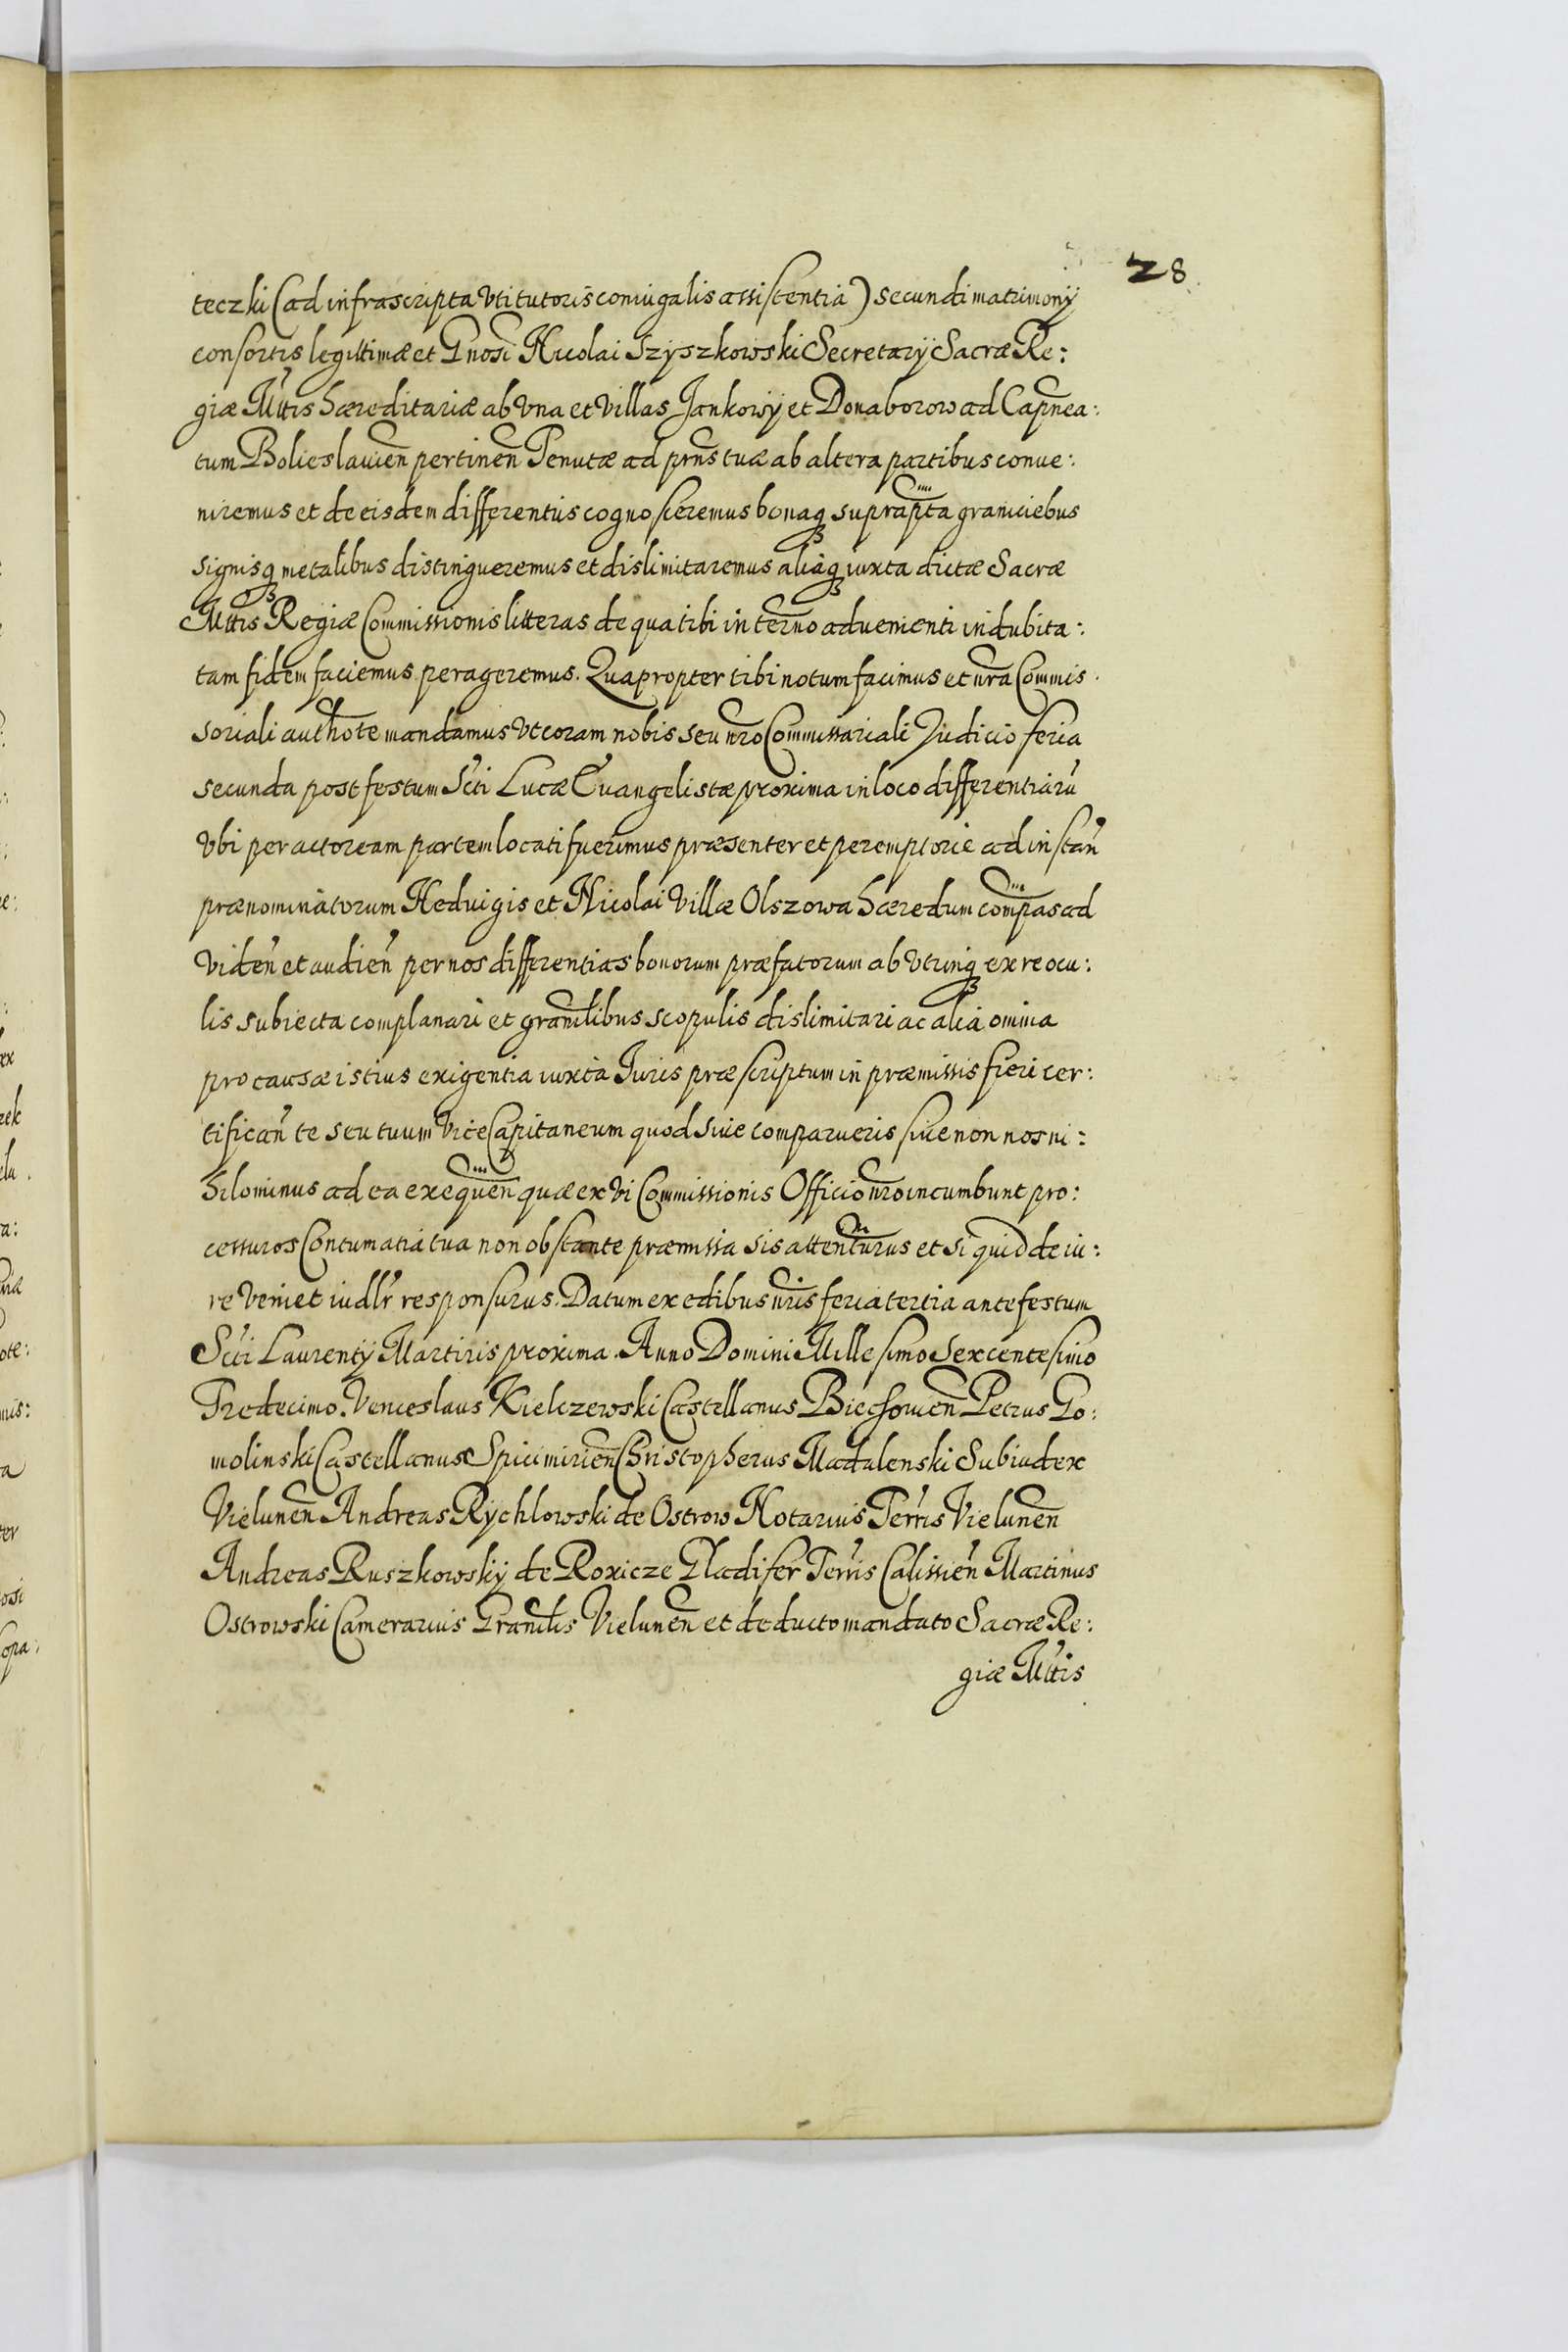 28
teczki (ad infrascripta Vti tutoris coniugalis assistentia) secundi matrimonÿ
consortis legittimæ et Gnosi Nicolai Szyszkowski Secretarÿ Sacræ Re:
giæ Mttis hæreditariæ ab Vna et Villas Jankowÿ et Donaborow ad Capnea:
tum Bolieslauien pertinen Tenutæ ad pnns tuæ ab altera partibus conue:
niremus et de eisdem differentiis cognosceremus bonaq suprapta graniciebus
signisq metalibus distingueremus et dislimitaremus aliaq iuxta dictæ Sacræ
Mttis Regiæ Commissionis litteras de qua tibi in termino aduenienti indubita:
tam fidem faciemus perageremus. Quapropter tibi notum facimus et nra Commis:
soriali authote mandamus Vt coram nobis seu nro Commissariali Judicio feria
secunda post festum Scti Lucæ Euangelistæ proxima in loco differentiaru
Vbi per actoream partem locati fuerimus præsenter et peremptorie ad instan
prænominatorum Heduigis et Nicolai Villæ Olszowa hæredum compas ad
Viden et audien per nos differentias bonorum præfatorum ab Vtrinq ex re ocu:
lis subiecta complanari et granilibus scopulis dislimitari ac alia omnia
pro causæ istius exigentia iuxta Juris præscriptum in præmissis fieri cer:
tifican te seu tuum Vice Capitaneum quod siue comparueris siue non nos ni:
hilominus ad ea exequen quæ ex Vi Commissionis Officio nro incumbunt pro:
cessuros Contumatia tua non obstante præmissa sis attenturus et si quid de iu:
re Veniet iudlr responsurus. Datum ex edibus nris feria tertia ante festum
Scti Laurentÿ Martiris proxima. Anno Domini Millesimo Sexcentesimo
Tredecimo. Venceslaus Kielczewski Castellanus Biechouien Petrus Go:
molinski Castellanus Spicimirien Christopherus Madalenski Subiudex
Vielunen Andreas Rychlowski de Ostrow Notarius Terris Vielunen
Andreas Ruszkowskÿ de Roxicze Gladifer Terris Calissien Martinus
Ostrowski Camerarius Granilis Vielunen et deducto mandato Sacræ Re:
giæ Mttis